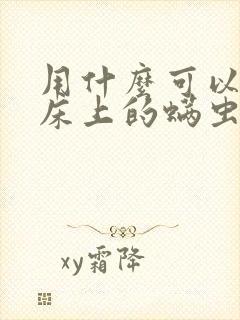 用什麼可以
床上的螨虫
xy霜降